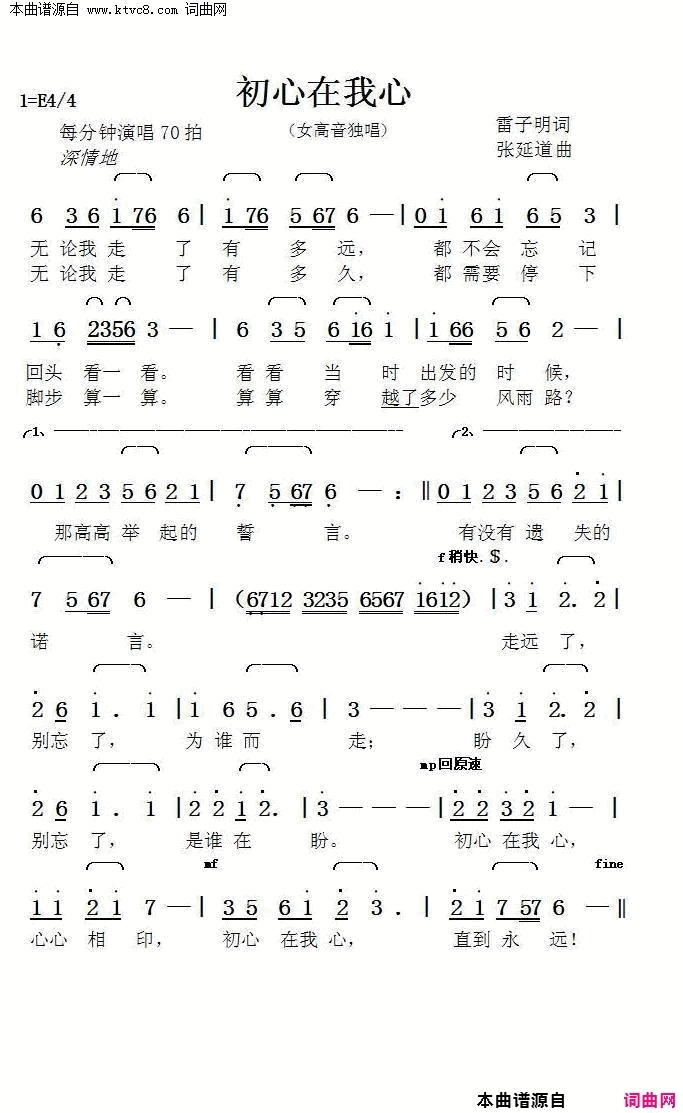 本曲谱源自 www.ktvc8.com 词曲网
初心在我心
1=E4/4
每分钟演唱70拍
(女高音独唱)
雷子明词
深情地
张延道曲
6 3 6 i 7 6 6 | i 7 6 5 6 7 6 — | 0 i 6 i 6 5 3 |
无论我走 了有 多 远， 都不会忘 记
无论我走 了有 多 久， 都需要停 下
1 6 2356 3 — | 6 3 5 6 i6 i | i 66 5 6 2 — |
回头 看一看。 看看 当 时 出发的 时 候，
脚步 算一算。 算算 穿 越了多少 风雨路？
1、 2、
0 1 2 3 5 6 2 1 | 7 5 67 6 — :‖ 0 1 2 3 5 6 2 i |
那高高 举 起的 誓 言。 有没有 遗 失的
f 稍快. $.
7 5 67 6 — | (6712 3235 6567 1612) | 3 i 2. 2 |
诺 言。 走远 了，
2 6 i . i | i 6 5 . 6 | 3 — — — | 3 i 2. 2 |
别忘 了， 为 谁而 走； 盼久 了，
mp回原速
2 6 i . i | 2 2 i 2. | 3 — — — | 2 2 3 2 i — |
别忘 了， 是谁 在 盼。 初心 在我 心，
mf fine
i i 2 i 7 — | 3 5 6 i 2 3 . | 2 i 7 57 6 — ‖
心心 相 印， 初心 在我 心， 直到 永 远！
本曲谱源自 词曲网